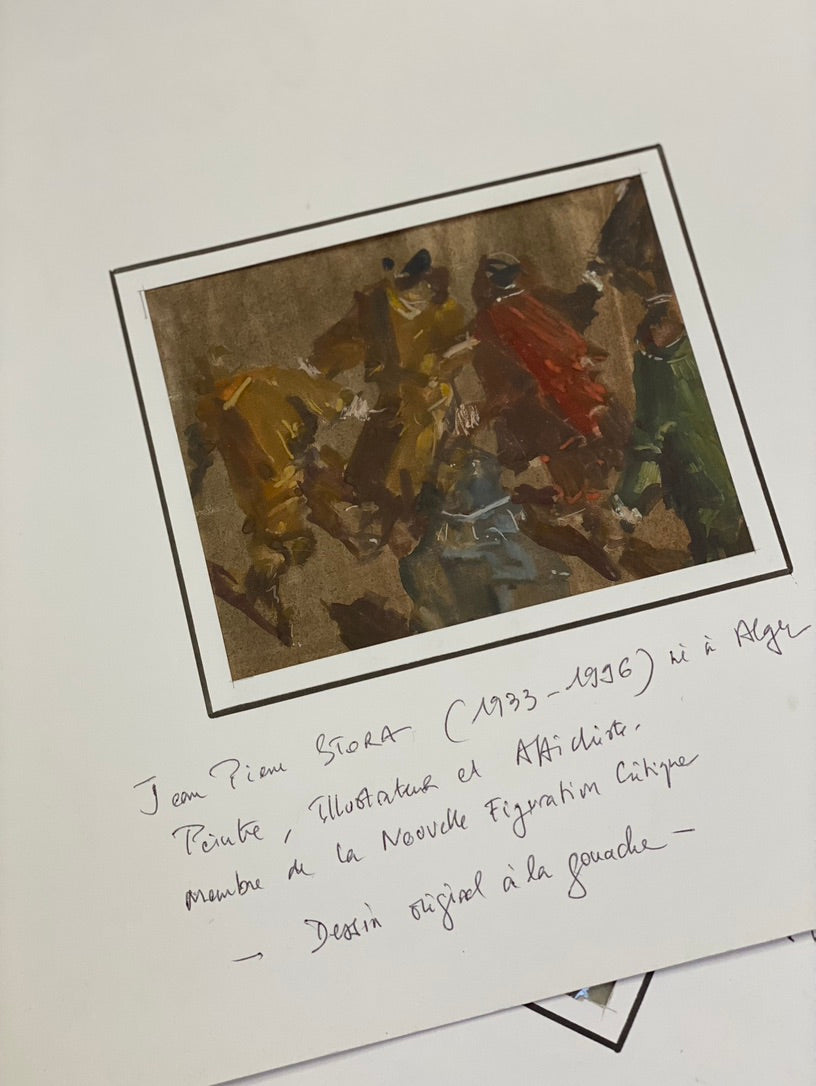 Jean Pierre STORA (1933-1996) né à Alger
Peintre, Illustrateur et Affichiste.
Membre de la Nouvelle Figuration Critique
→ Dessin original à la gouache —